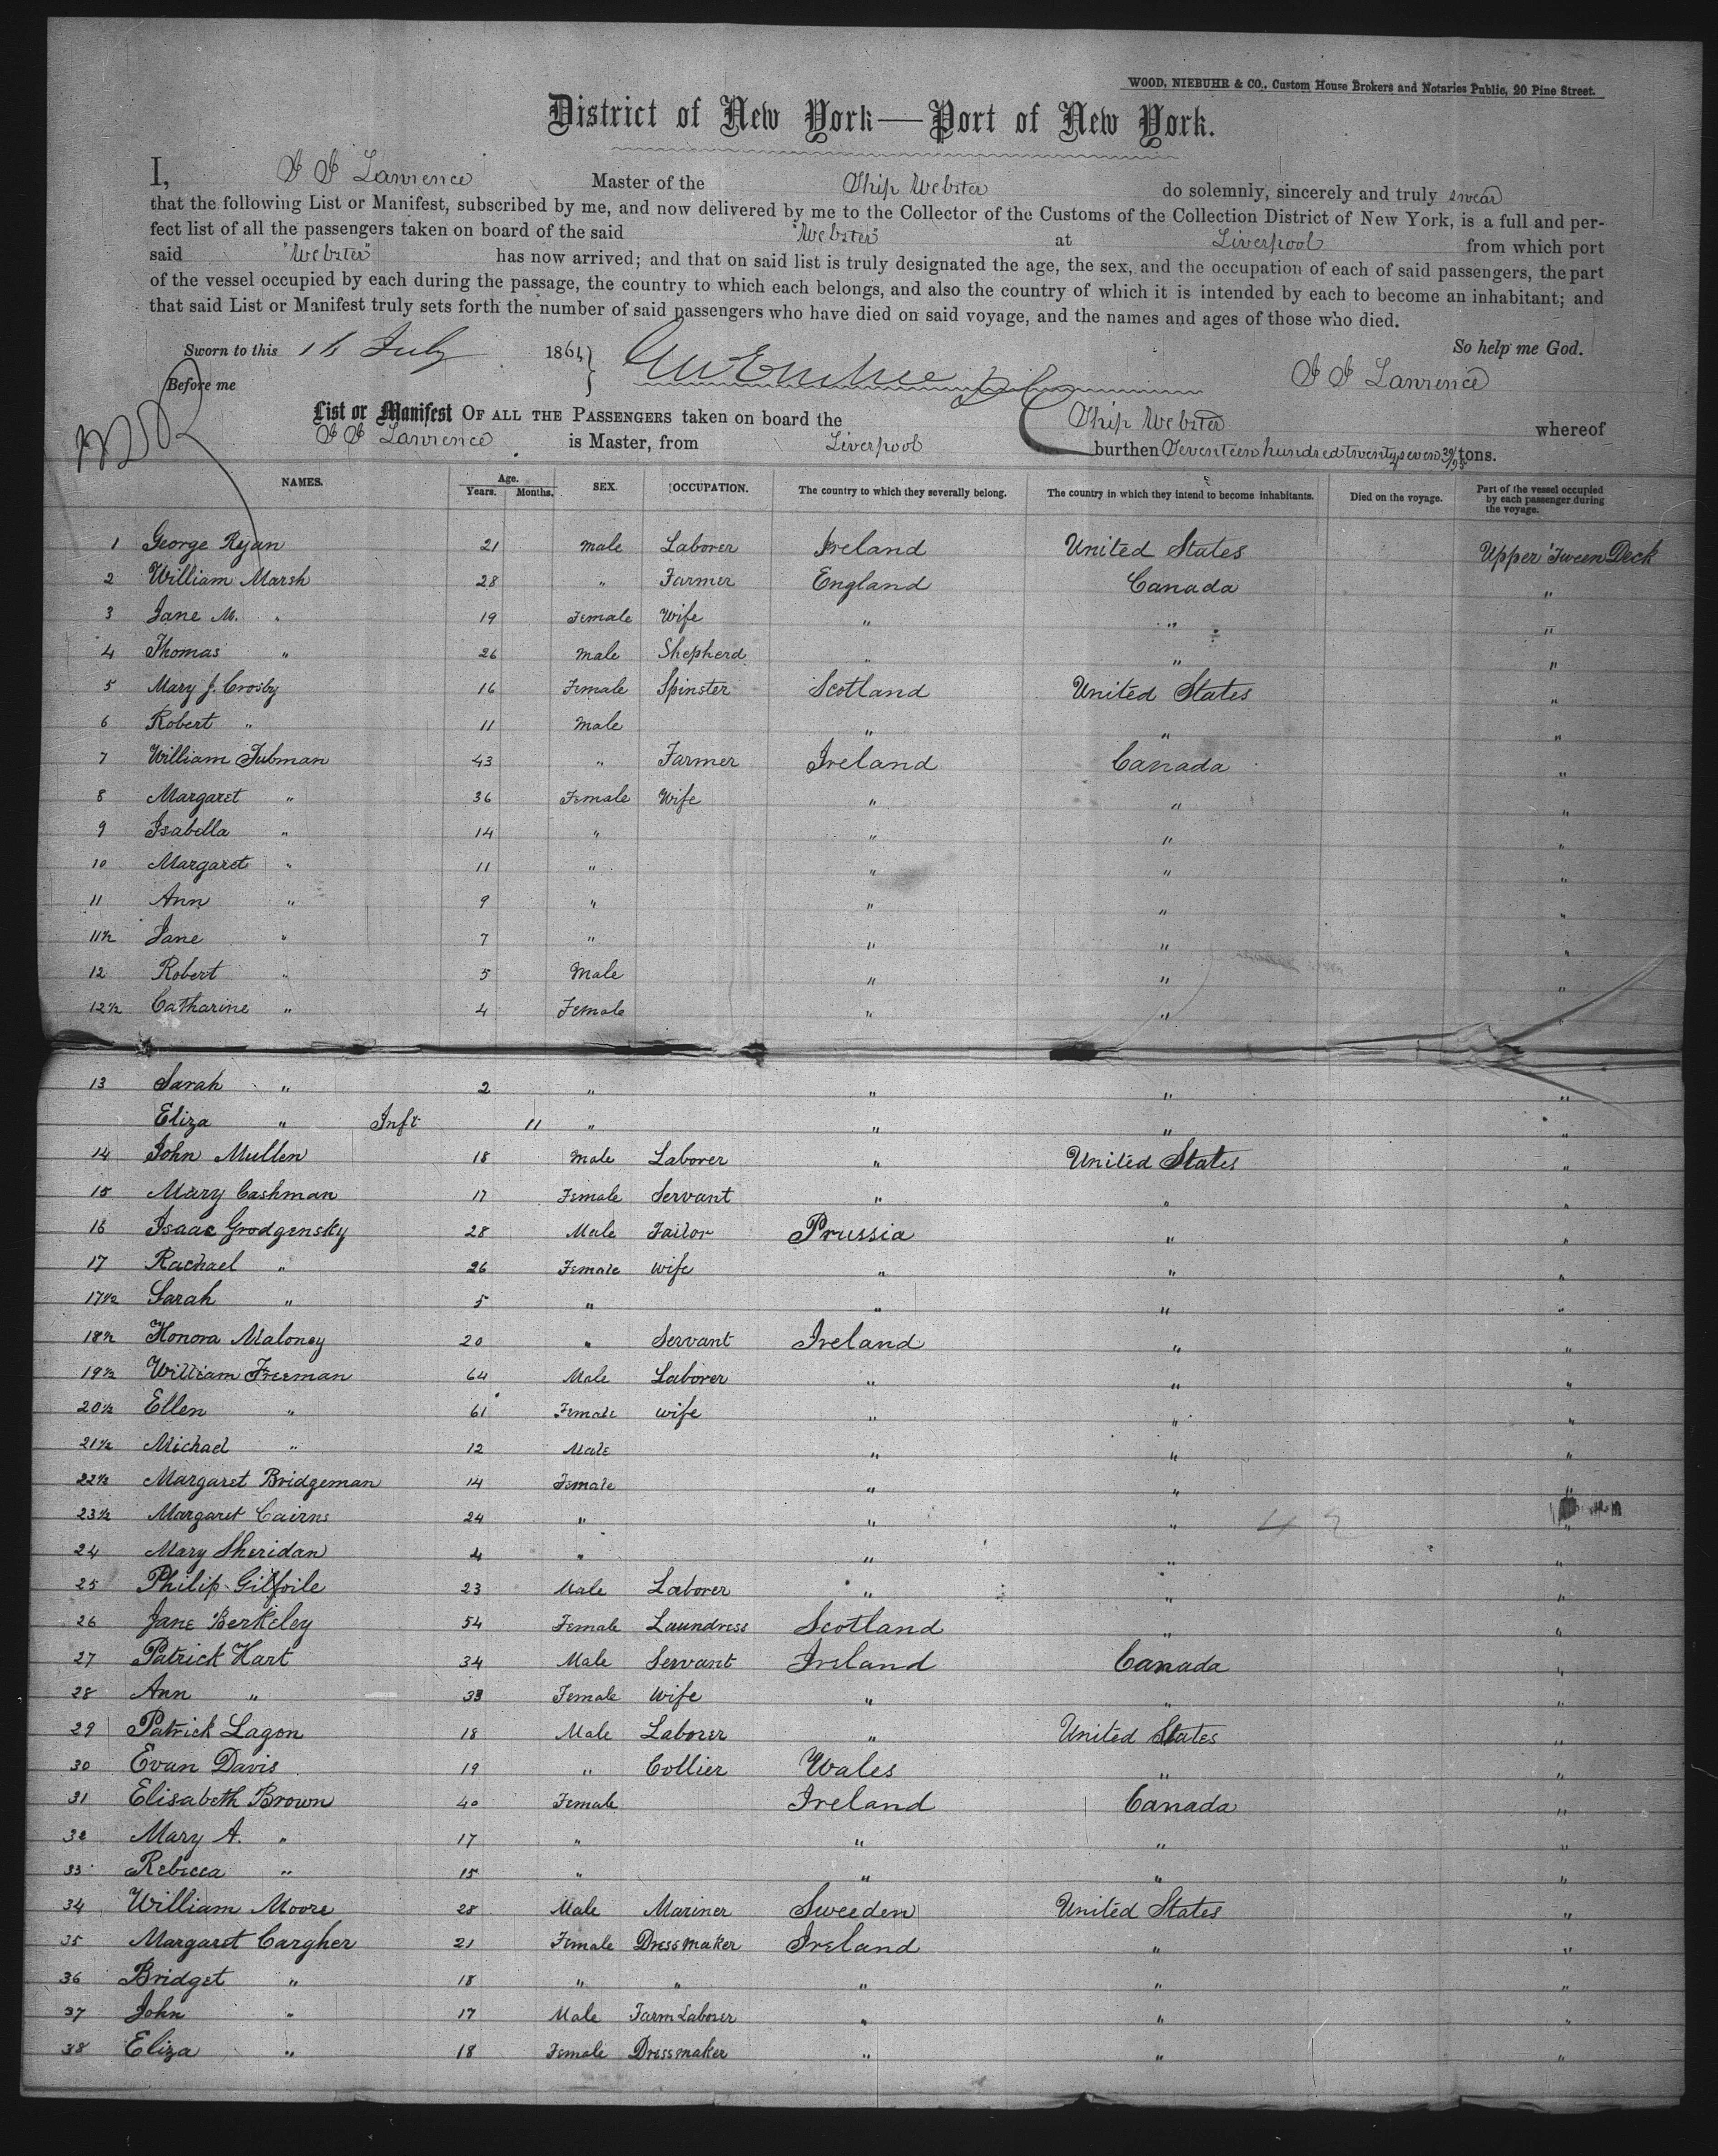 WOOD, NIEBUHR & CO., Custom House Brokers and Notaries Public, 20 Pine Street.
District of New York—Port of New York.
I, J J Lawrence Master of the Ship Webster do solemnly, sincerely and truly swear
that the following List or Manifest, subscribed by me, and now delivered by me to the Collector of the Customs of the Collection District of New York, is a full and per-
fect list of all the passengers taken on board of the said "Webster" at Liverpool from which port
said "Webster" has now arrived; and that on said list is truly designated the age, the sex, and the occupation of each of said passengers, the part
of the vessel occupied by each during the passage, the country to which each belongs, and also the country of which it is intended by each to become an inhabitant; and
that said List or Manifest truly sets forth the number of said passengers who have died on said voyage, and the names and ages of those who died.
Sworn to this 16 July 1864 So help me God.
Before me J J Lawrence
List or Manifest OF ALL THE PASSENGERS taken on board the Ship Webster whereof
J J Lawrence is Master, from Liverpool burthen Seventeen hundred twenty seven 39/95 tons.
NAMES. Age. Years. Months. SEX. OCCUPATION. The country to which they severally belong. The country in which they intend to become inhabitants. Died on the voyage. Part of the vessel occupied by each passenger during the voyage.
1 George Ryan 21 Male Laborer Ireland United States Upper 'Tween Deck
2 William Marsh 28 " Farmer England Canada "
3 Jane M. " 19 Female Wife " " "
4 Thomas " 26 Male Shepherd " " "
5 Mary J. Crosby 16 Female Spinster Scotland United States "
6 Robert " 11 Male " " "
7 William Tubman 43 " Farmer Ireland Canada "
8 Margaret " 36 Female Wife " " "
9 Isabella " 14 " " " "
10 Margaret " 11 " " " "
11 Ann " 9 " " " "
11½ Jane " 7 " " " "
12 Robert " 5 Male " " "
12½ Catharine " 4 Female " " "
13 Sarah " 2 " " " "
Eliza " Inft 11 " " " "
14 John Mullen 18 Male Laborer " United States "
15 Mary Cashman 17 Female Servant " " "
16 Isaac Grodgensky 28 Male Tailor Prussia " "
17 Rachael " 26 Female Wife " " "
17½ Sarah " 5 " " " "
18½ Honora Maloney 20 " Servant Ireland " "
19½ William Freeman 64 Male Laborer " " "
20½ Ellen " 61 Female Wife " " "
21½ Michael " 12 Male " " "
22½ Margaret Bridgeman 14 Female " " "
23½ Margaret Cairns 24 " " " "
24 Mary Sheridan 4 " " " "
25 Philip Gilfoile 23 Male Laborer " " "
26 Jane Berkeley 54 Female Laundress Scotland " "
27 Patrick Hart 34 Male Servant Ireland Canada "
28 Ann " 33 Female Wife " " "
29 Patrick Lagon 18 Male Laborer " United States "
30 Evan Davis 19 " Collier Wales " "
31 Elisabeth Brown 40 Female Ireland Canada "
32 Mary A. " 17 " " " "
33 Rebecca " 15 " " " "
34 William Moore 28 Male Mariner Sweeden United States "
35 Margaret Cargher 21 Female Dressmaker Ireland " "
36 Bridget " 18 " " " " "
37 John " 17 Male Farm Laborer " " "
38 Eliza " 18 Female Dressmaker " " "